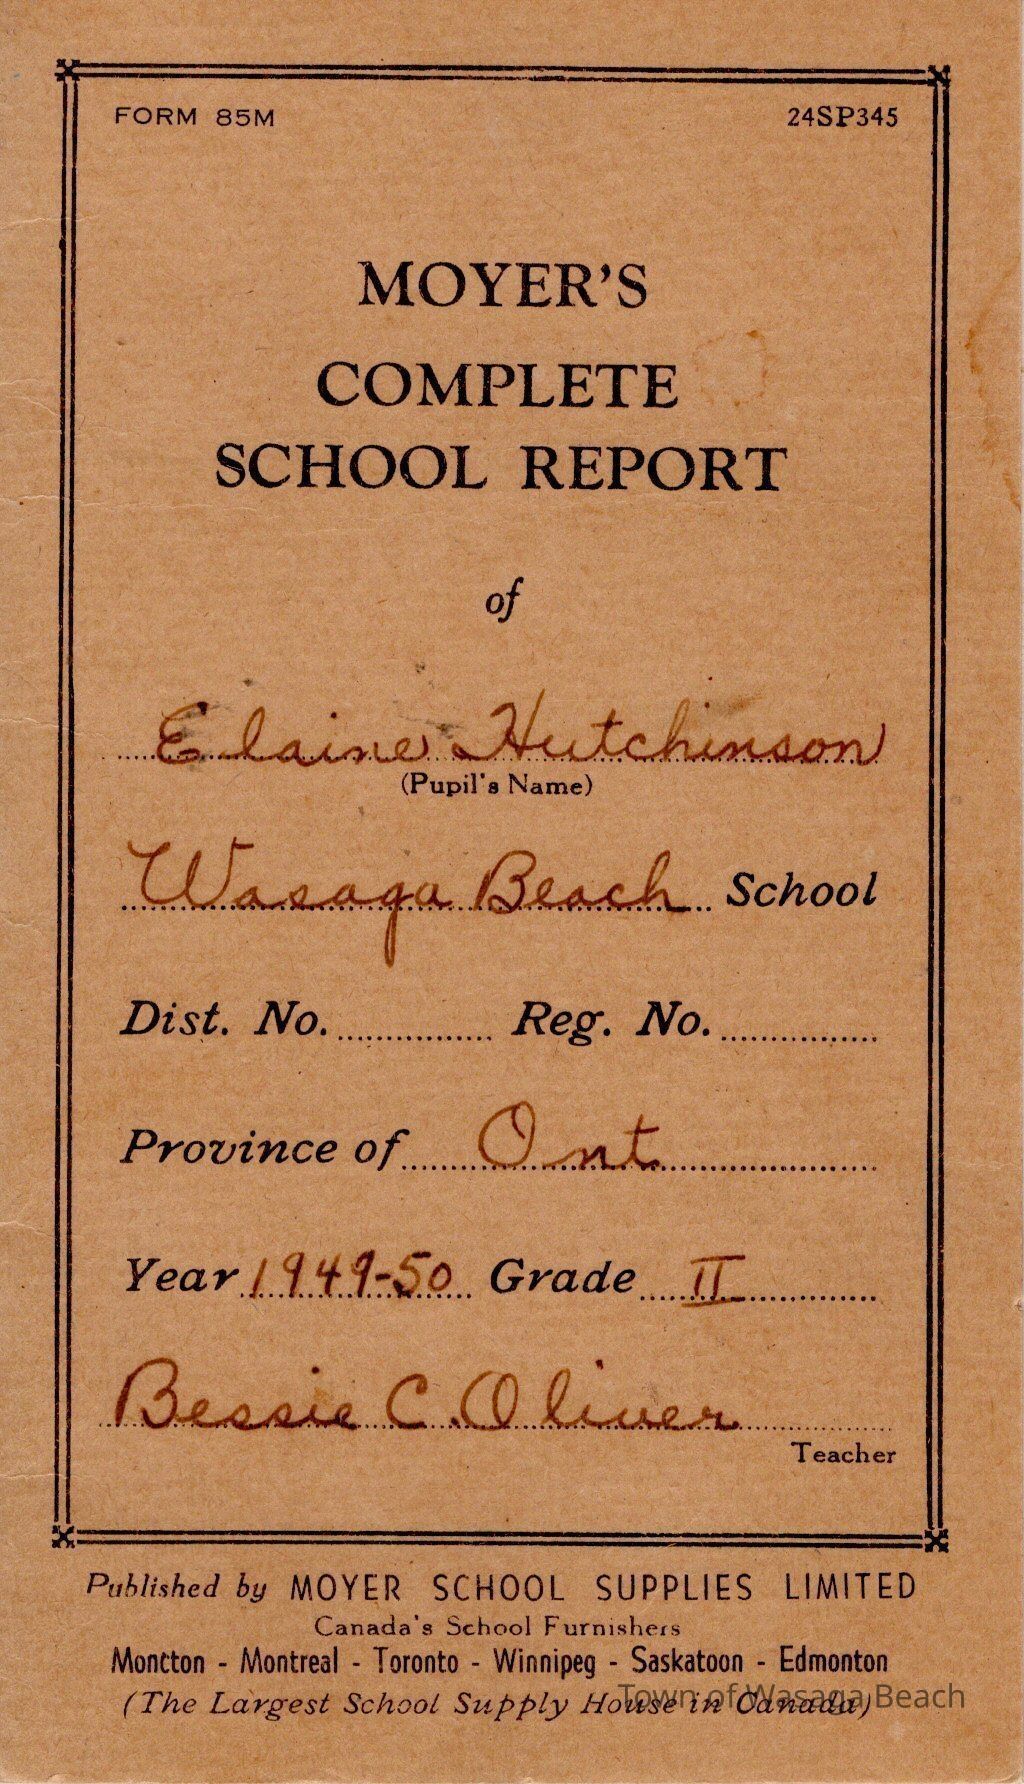 FORM 85M 24SP345
MOYER'S
COMPLETE
SCHOOL REPORT
of
Elaine Hutchinson
(Pupil's Name)
Wasaga Beach School
Dist. No. Reg. No.
Province of Ont
Year 1949-50 Grade II
Bessie C. Oliver
Teacher
Published by MOYER SCHOOL SUPPLIES LIMITED
Canada's School Furnishers
Moncton - Montreal - Toronto - Winnipeg - Saskatoon - Edmonton
(The Largest School Supply House in Canada)
Town of Wasaga Beach